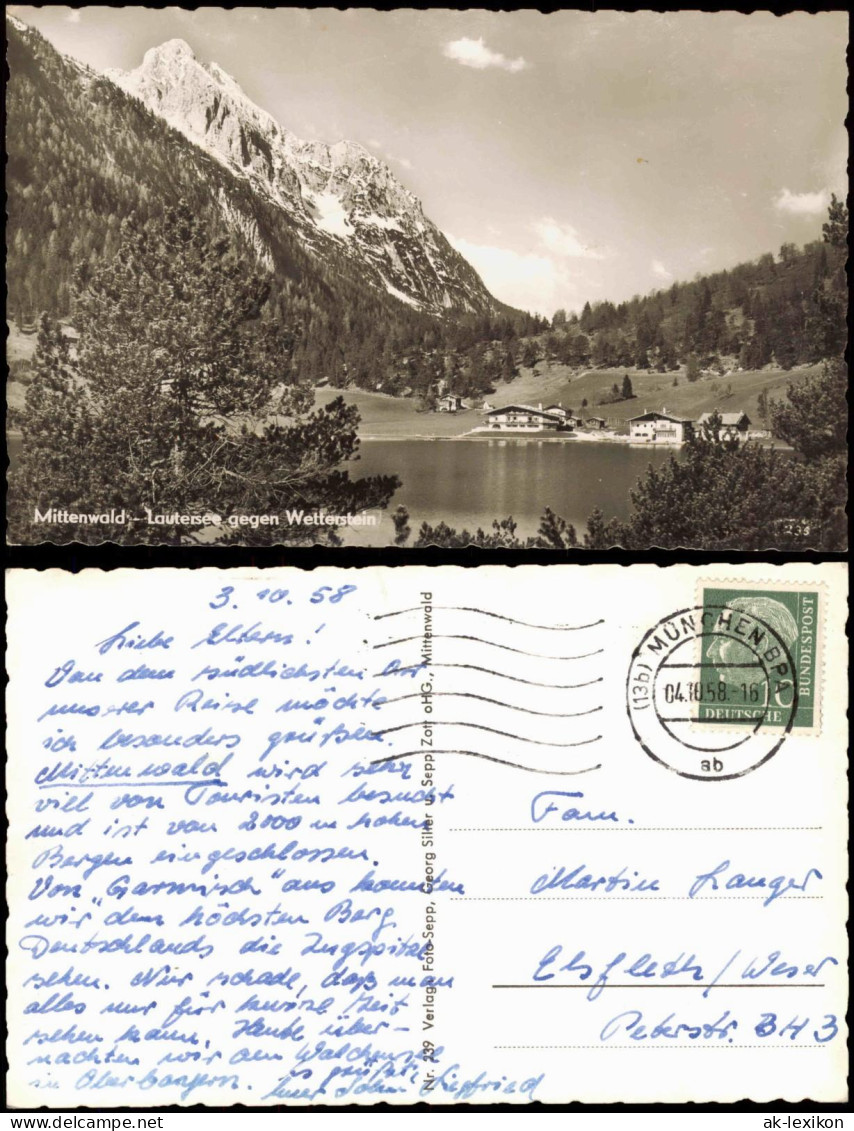 Mittenwald - Lautersee gegen Wetterstein
3. 10. 58
Liebe Eltern!
Von dem südlichsten Ort
unserer Reise möchte
ich besonders grüßen.
Mittenwald wird sehr
viel von Touristen besucht
und ist von 2000 m hohen
Bergen eingeschlossen.
Von "Garmisch" aus konnten
wir den höchsten Berg
Deutschlands die Zugspitze
sehen. Nur schade, daß man
alles nur für kurze Zeit
sehen kann. Heute über-
nachten wir am Walchensee
in Oberbayern. Es grüßt
Euer Sohn Siegfried
Nr. 239 Verlag: Foto-Sepp, Georg Silter u. Sepp Zott oHG., Mittenwald
(13b) MÜNCHEN BPA
04.10.58.-16
ab
DEUTSCHE
BUNDESPOST
10
Fam.
Martin Langer
Elsfleth/Weser
Peterstr. 3H3
ak-lexikon.com